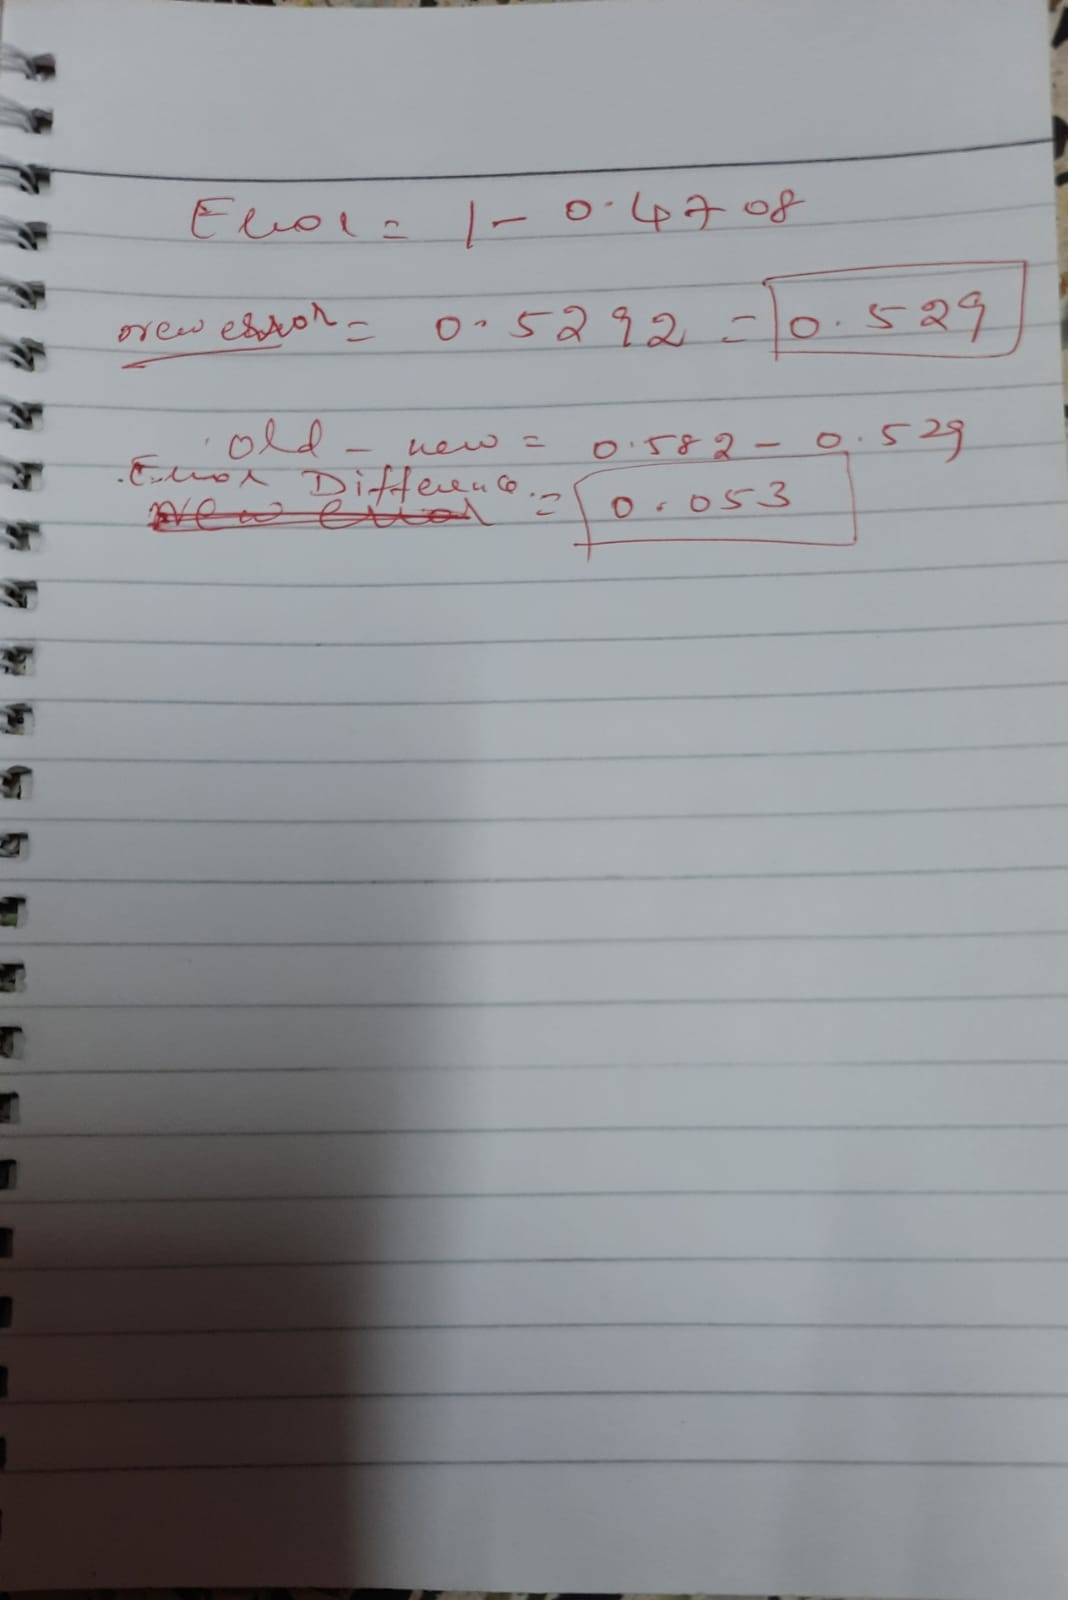 Error = 1 - 0.4708
new error = 0.5292 = 0.529
old - new = 0.582 - 0.529
Error Difference = 0.053
New error